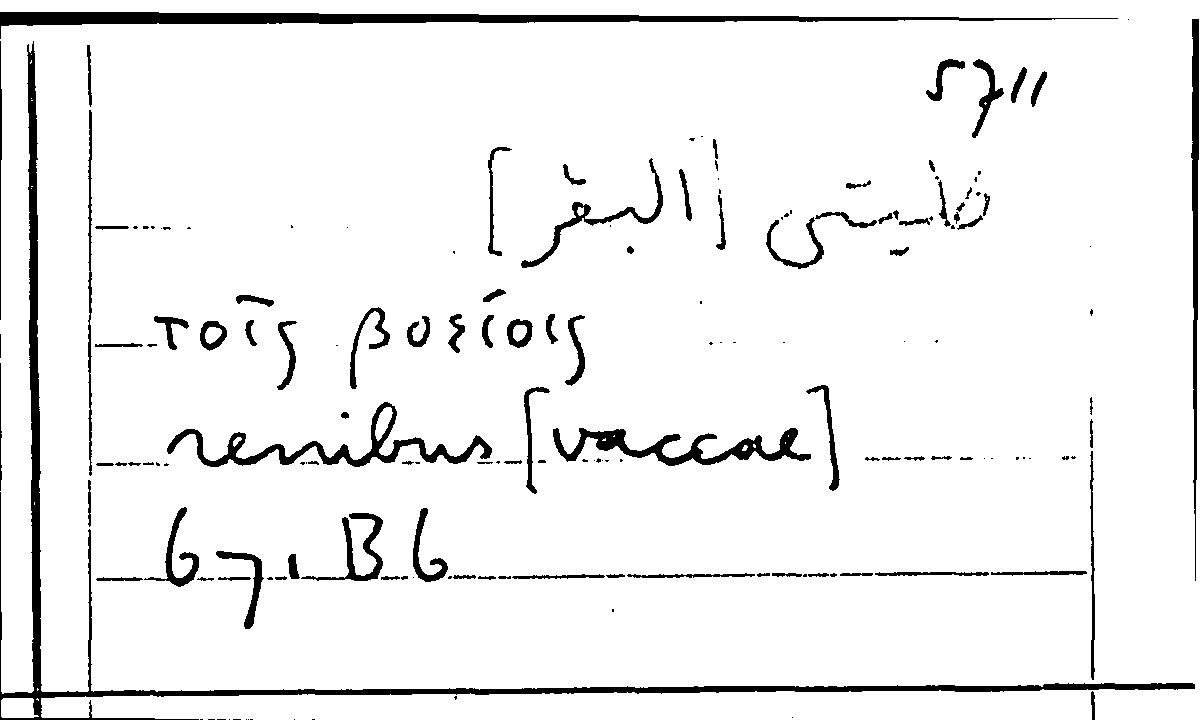 5711
كليتى [البقر]
τοῖς βοείοις
renibus [vaccae]
671 B 6